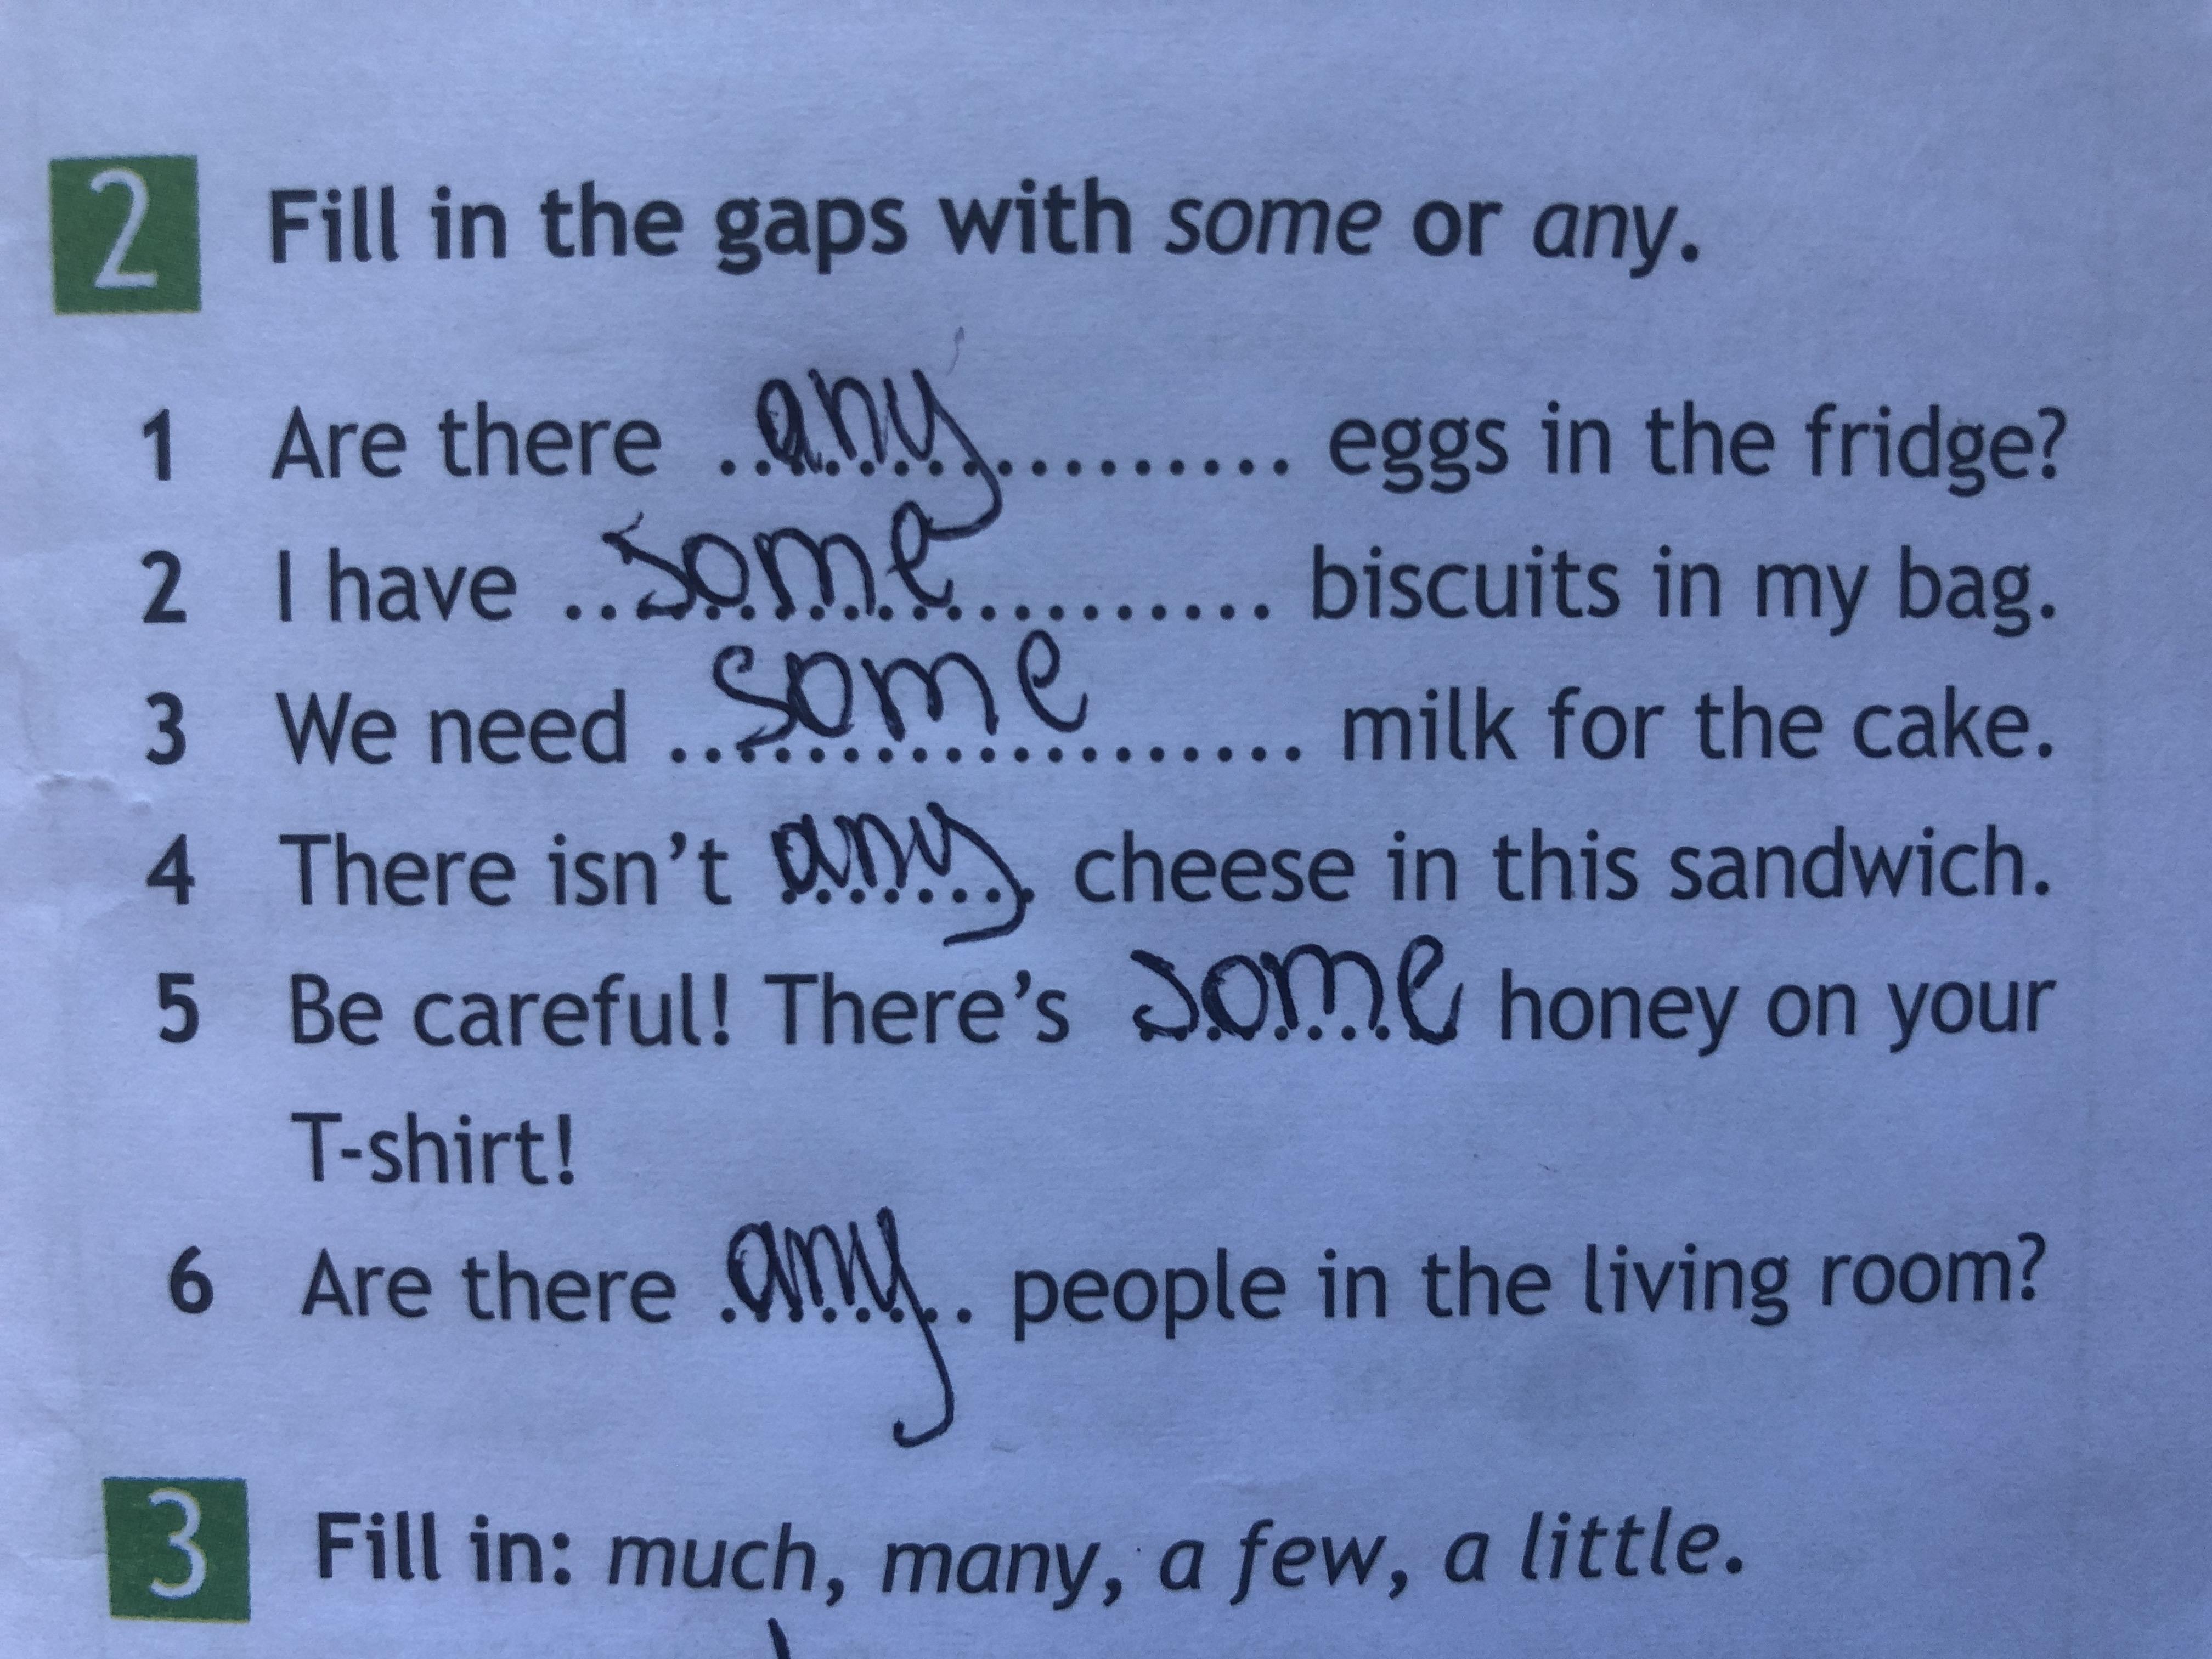 2 Fill in the gaps with some or any.
1 Are there ..any.......... eggs in the fridge?
2 I have ..some.......... biscuits in my bag.
3 We need ..some.......... milk for the cake.
4 There isn't any cheese in this sandwich.
5 Be careful! There's some honey on your
T-shirt!
6 Are there .any.. people in the living room?
3 Fill in: much, many, a few, a little.